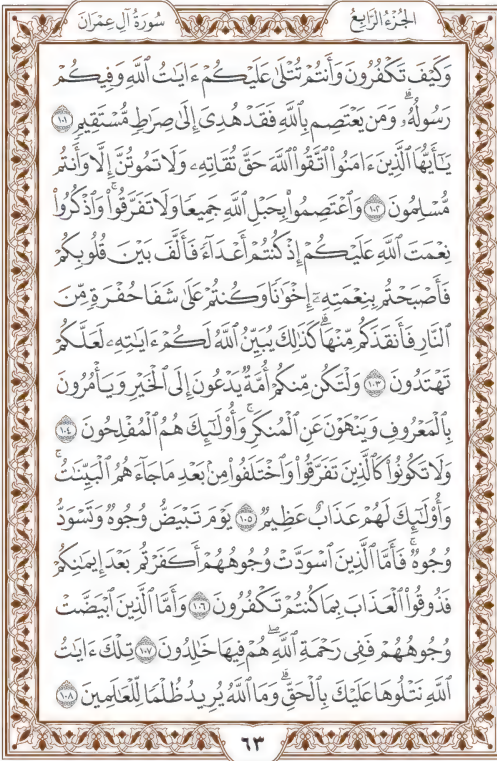 الجُزْءُ الرَّابِعُ
سُورَةُ آلِ عِمْرَانَ
وَكَيْفَ تَكْفُرُونَ وَأَنتُمْ تُتْلَىٰ عَلَيْكُمْ ءَايَٰتُ ٱللَّهِ وَفِيكُمْ
رَسُولُهُۥۗ وَمَن يَعْتَصِم بِٱللَّهِ فَقَدْ هُدِىَ إِلَىٰ صِرَٰطٍ مُّسْتَقِيمٍ ١٠١
يَٰٓأَيُّهَا ٱلَّذِينَ ءَامَنُوا۟ ٱتَّقُوا۟ ٱللَّهَ حَقَّ تُقَاتِهِۦ وَلَا تَمُوتُنَّ إِلَّا وَأَنتُم
مُّسْلِمُونَ ١٠٢ وَٱعْتَصِمُوا۟ بِحَبْلِ ٱللَّهِ جَمِيعًا وَلَا تَفَرَّقُوا۟ۚ وَٱذْكُرُوا۟
نِعْمَتَ ٱللَّهِ عَلَيْكُمْ إِذْ كُنتُمْ أَعْدَآءً فَأَلَّفَ بَيْنَ قُلُوبِكُمْ
فَأَصْبَحْتُم بِنِعْمَتِهِۦٓ إِخْوَٰنًا وَكُنتُمْ عَلَىٰ شَفَا حُفْرَةٍ مِّنَ
ٱلنَّارِ فَأَنقَذَكُم مِّنْهَاۗ كَذَٰلِكَ يُبَيِّنُ ٱللَّهُ لَكُمْ ءَايَٰتِهِۦ لَعَلَّكُمْ
تَهْتَدُونَ ١٠٣ وَلْتَكُن مِّنكُمْ أُمَّةٌ يَدْعُونَ إِلَى ٱلْخَيْرِ وَيَأْمُرُونَ
بِٱلْمَعْرُوفِ وَيَنْهَوْنَ عَنِ ٱلْمُنكَرِۚ وَأُو۟لَٰٓئِكَ هُمُ ٱلْمُفْلِحُونَ ١٠٤
وَلَا تَكُونُوا۟ كَٱلَّذِينَ تَفَرَّقُوا۟ وَٱخْتَلَفُوا۟ مِنۢ بَعْدِ مَا جَآءَهُمُ ٱلْبَيِّنَٰتُۚ
وَأُو۟لَٰٓئِكَ لَهُمْ عَذَابٌ عَظِيمٌ ١٠٥ يَوْمَ تَبْيَضُّ وُجُوهٌ وَتَسْوَدُّ
وُجُوهٌۚ فَأَمَّا ٱلَّذِينَ ٱسْوَدَّتْ وُجُوهُهُمْ أَكَفَرْتُم بَعْدَ إِيمَٰنِكُمْ
فَذُوقُوا۟ ٱلْعَذَابَ بِمَا كُنتُمْ تَكْفُرُونَ ١٠٦ وَأَمَّا ٱلَّذِينَ ٱبْيَضَّتْ
وُجُوهُهُمْ فَفِى رَحْمَةِ ٱللَّهِۖ هُمْ فِيهَا خَٰلِدُونَ ١٠٧ تِلْكَ ءَايَٰتُ
ٱللَّهِ نَتْلُوهَا عَلَيْكَ بِٱلْحَقِّۗ وَمَا ٱللَّهُ يُرِيدُ ظُلْمًا لِّلْعَٰلَمِينَ ١٠٨
٦٣